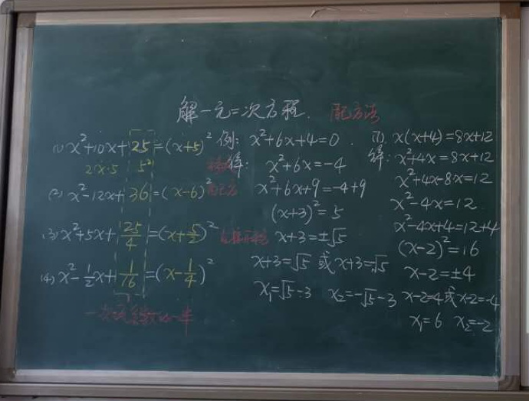 解一元二次方程. 配方法
(1) x²+10x+25=(x+5)²
2·x·5 5²
(2) x²-12x+36=(x-6)²
(3) x²+5x+25/4=(x+5/2)²
(4) x²-1/2x+1/16=(x-1/4)²
一次项系数的一半
例: x²+6x+4=0
解: x²+6x=-4
x²+6x+9=-4+9
(x+3)²=5
x+3=±√5
x+3=√5 或 x+3=-√5
x₁=√5-3 x₂=-√5-3
(1). x(x+4)=8x+12
解: x²+4x=8x+12
x²+4x-8x=12
x²-4x=12
x²-4x+4=12+4
(x-2)²=16
x-2=±4
x-2=4或x-2=-4
x₁=6 x₂=-2